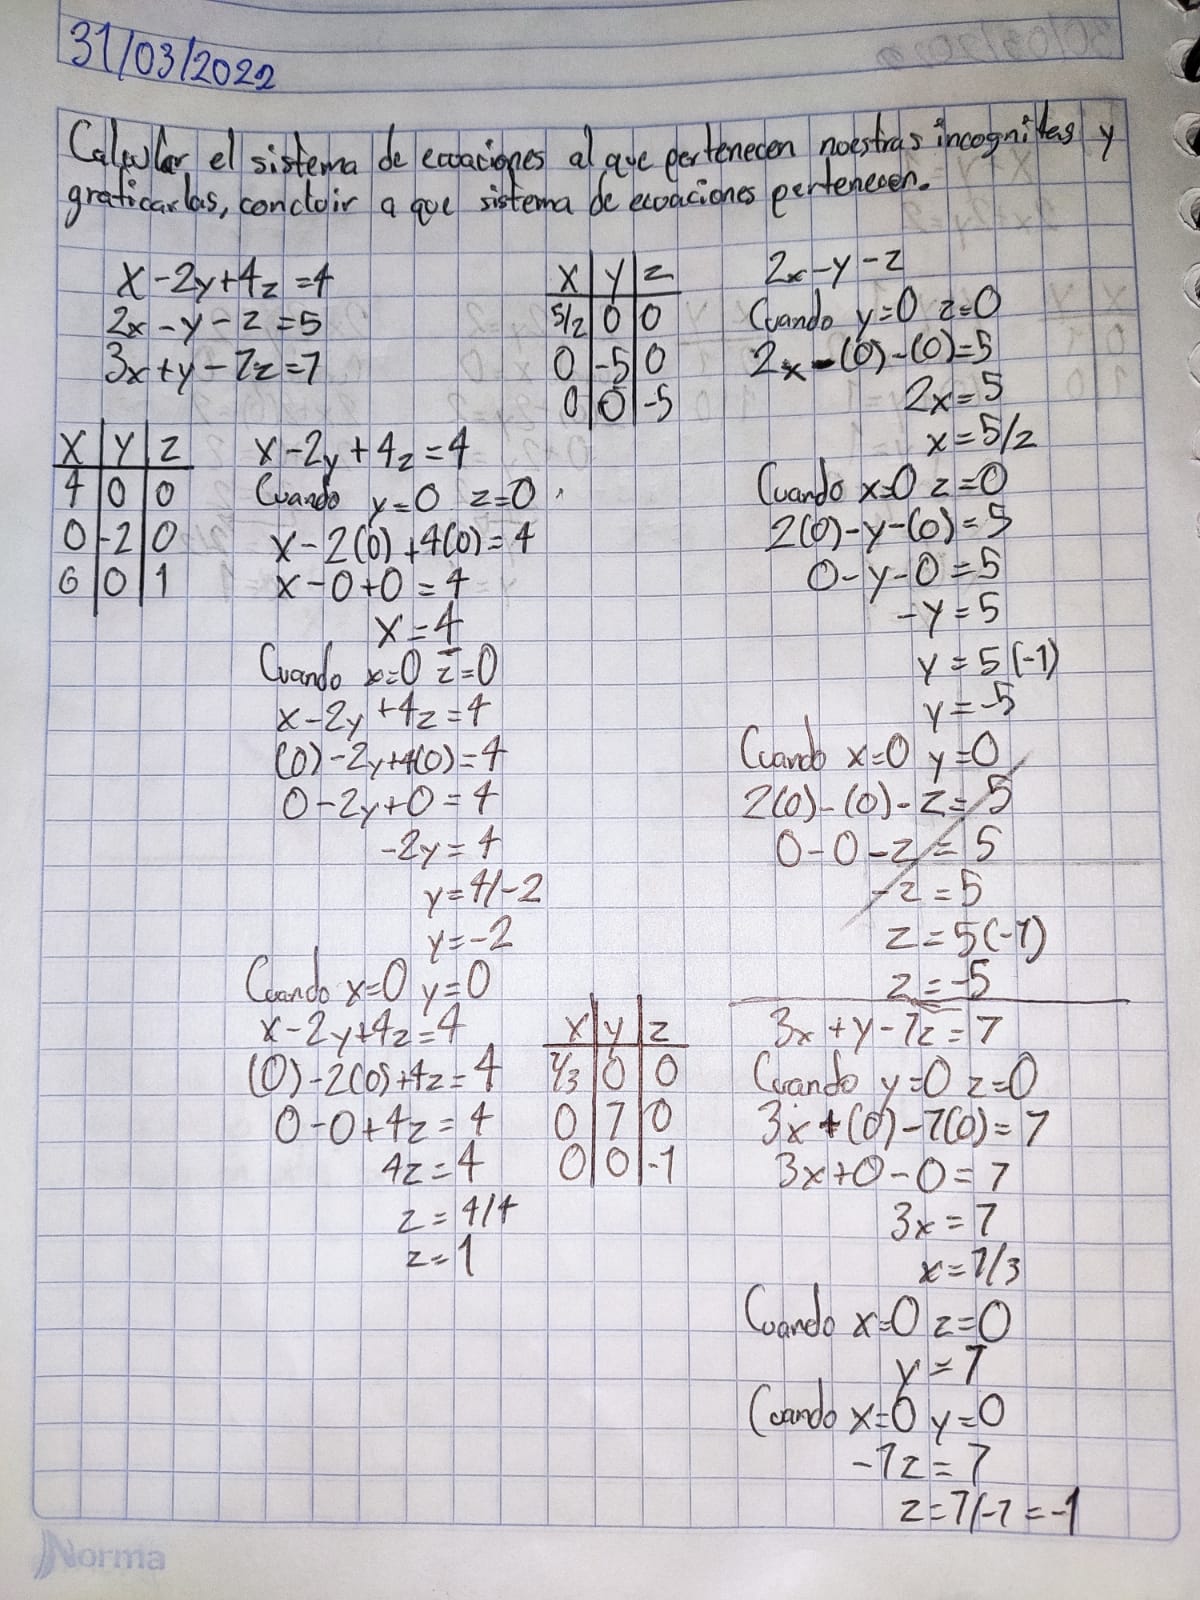 31/03/2022
Calcular el sistema de ecuaciones al que pertenecen nuestras incognitas y
graficarlas, concluir a que sistema de ecuaciones pertenecen.
x-2y+4z=4
2x-y-z=5
3x+y-7z=7
X Y Z
4 0 0
0 -2 0
0 0 1
x-2y+4z=4
Cuando y=0 z=0
x-2(0)+4(0)=4
x-0+0=4
x=4
Cuando x=0 z=0
x-2y+4z=4
(0)-2y+4(0)=4
0-2y+0=4
-2y=4
y=4/-2
y=-2
Cuando x=0 y=0
x-2y+4z=4
(0)-2(0)+4z=4
0-0+4z=4
4z=4
z=4/4
z=1
X Y Z
5/2 0 0
0 -5 0
0 0 -5
2x-y-z
Cuando y=0 z=0
2x-(0)-(0)=5
2x=5
x=5/2
Cuando x=0 z=0
2(0)-y-(0)=5
0-y-0=5
-y=5
y=5(-1)
y=-5
Cuando x=0 y=0
2(0)-(0)-z=5
0-0-z=5
-z=5
z=5(-1)
z=-5
X Y Z
7/3 0 0
0 7 0
0 0 -1
3x+y-7z=7
Cuando y=0 z=0
3x+(0)-7(0)=7
3x+0-0=7
3x=7
x=7/3
Cuando x=0 z=0
y=7
Cuando x=0 y=0
-7z=7
z=7/-7=-1
Norma